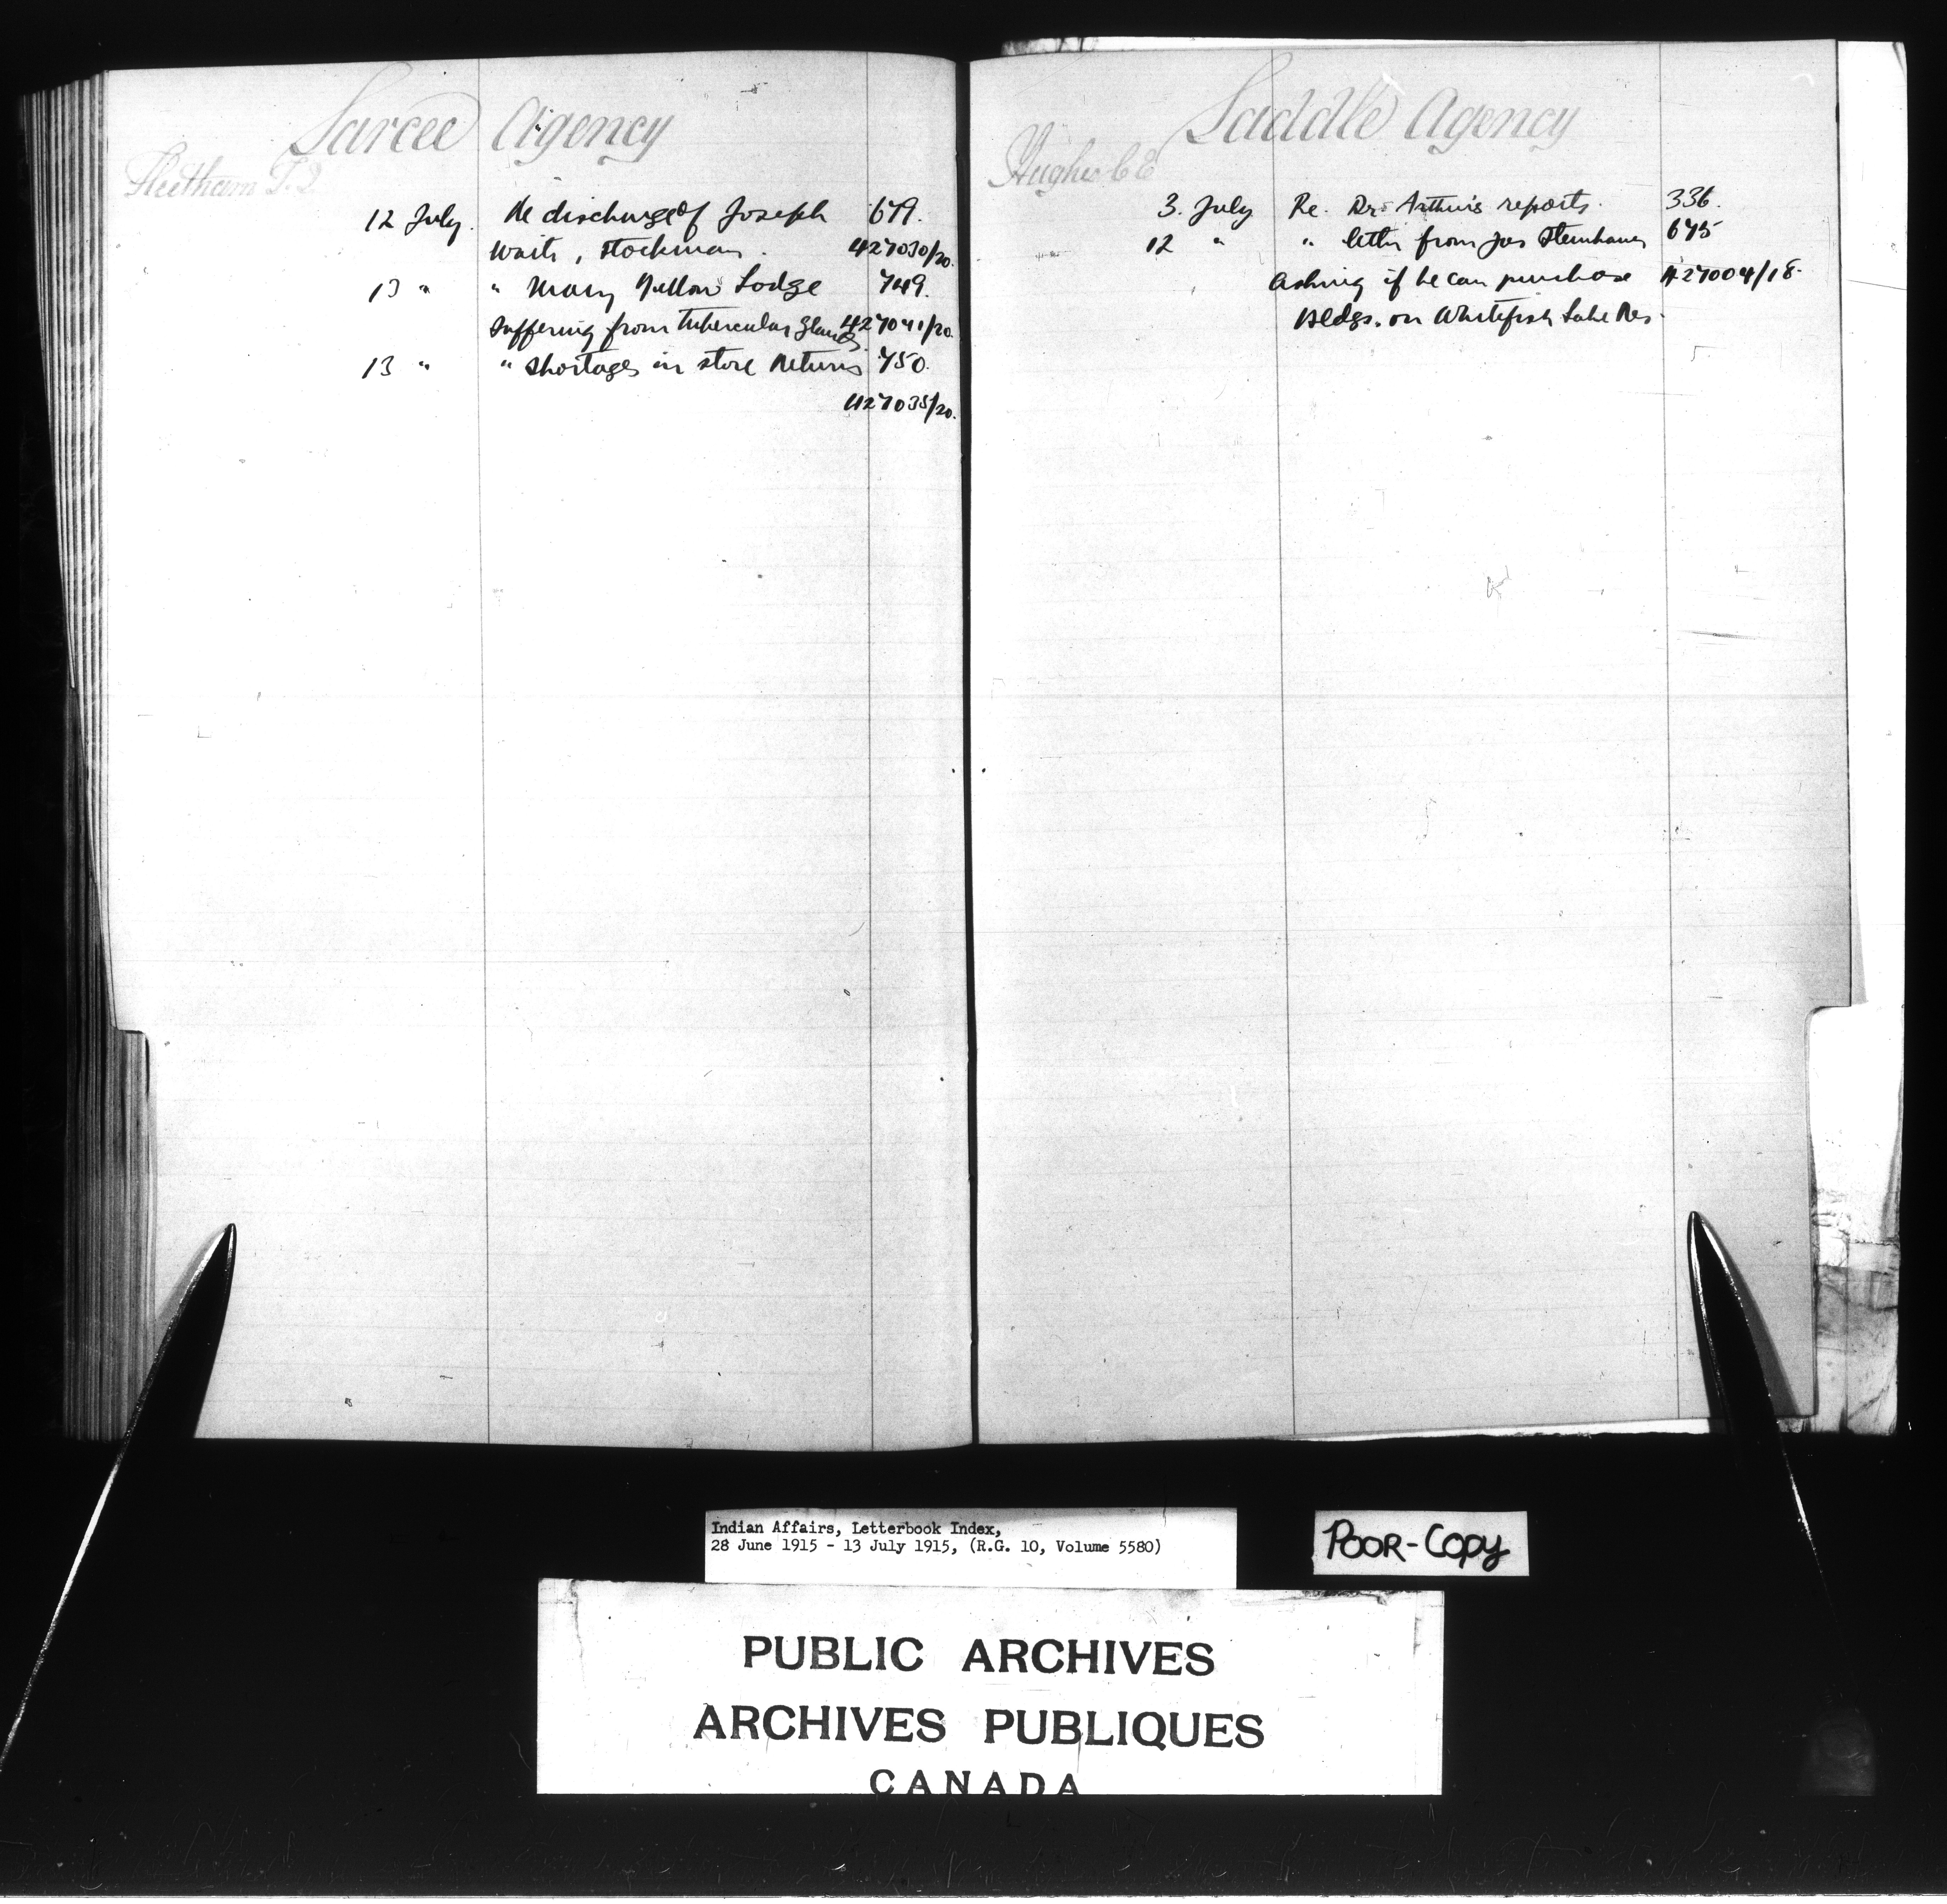 Sarcee Agency
Fleetham T. J.
12 July. Re discharge of Joseph 679.
Waits, Stockman. 427030/20.
13 " " Mary Yellow Lodge 749.
suffering from Tubercular Glands. 427041/20.
13 " " Shortages in store Returns 750.
427035/20.
Saddle Agency
Hughes C E
3. July Re. Dr. Arthur's reports. 336.
12 " " letter from Jas Steinhauer 675
Asking if he can purchase 427004/18.
Bldgs. on Whitefish Lake Res.
Indian Affairs, Letterbook Index,
28 June 1915 - 13 July 1915, (R.G. 10, Volume 5580)
POOR-COPY
PUBLIC ARCHIVES
ARCHIVES PUBLIQUES
CANADA